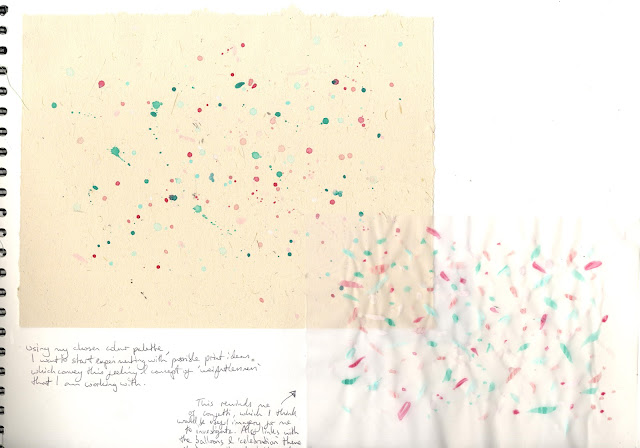 using my chosen colour palette
I want to start experimenting with possible print ideas,
which convey this feeling & concept of 'weightlessness'
that I am working with.
This reminds me
of confetti, which I think
would be useful imagery for me
to investigate. Also links with
the balloons & celebration theme